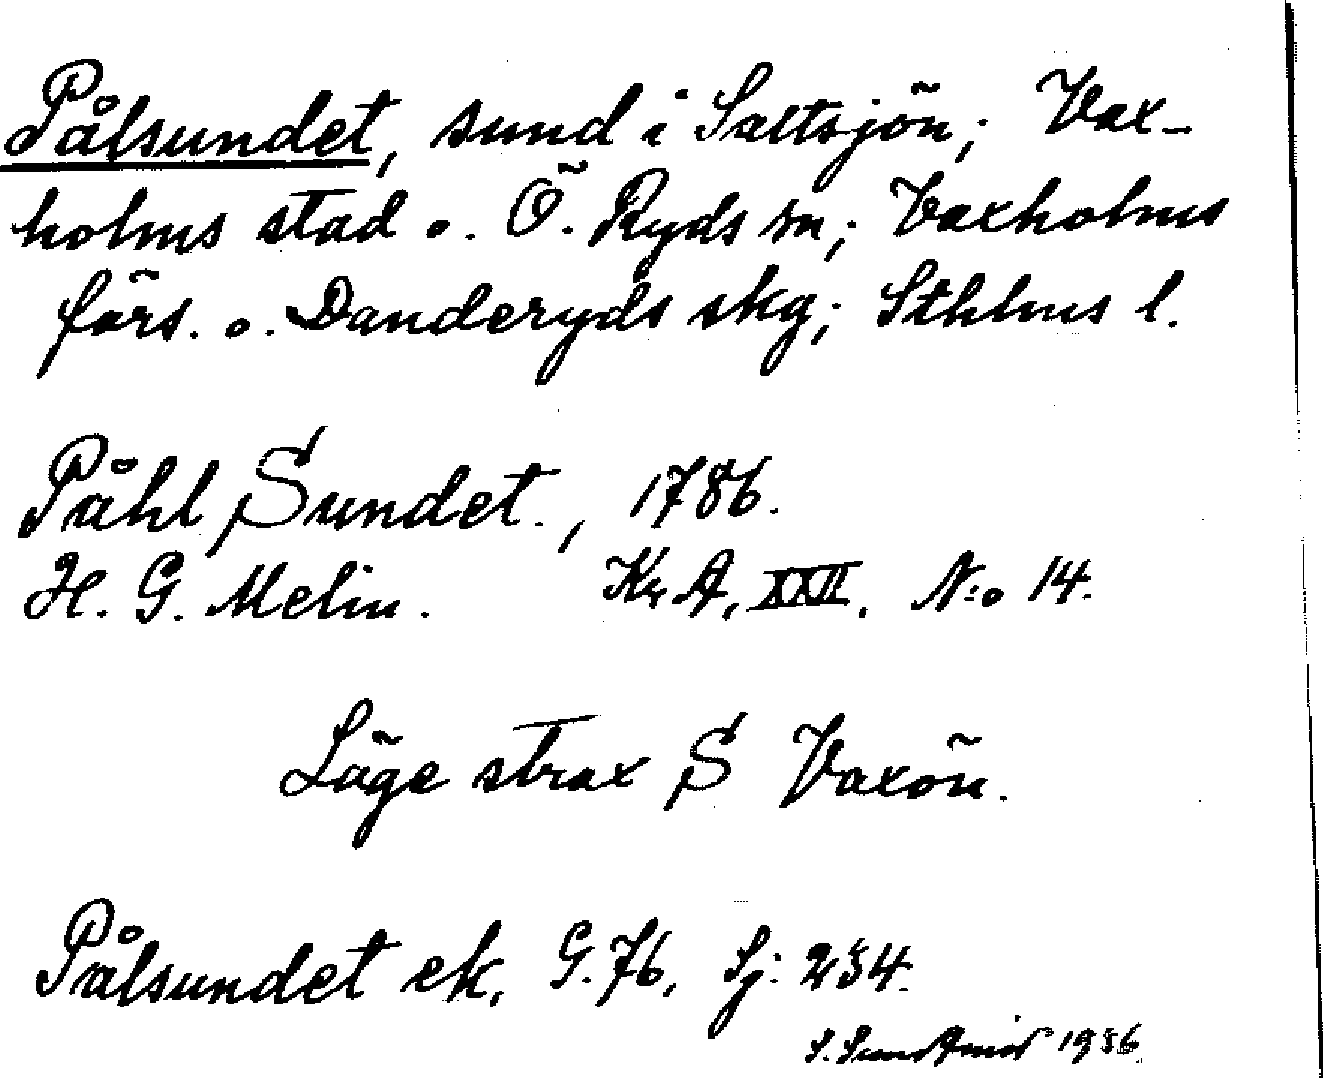 Pålsundet, sund i Saltsjön; Vax-
holms stad o. Ö. Ryds sn; Vaxholms
förs. o. Danderyds skg; Sthlms l.
Påhl Sundet., 1786.
H. G. Melin. Kr A, XXII. N:o 14.
Läge strax S Vaxön.
Pålsundet ek. G. 76, Sj: 234.
S. 1936